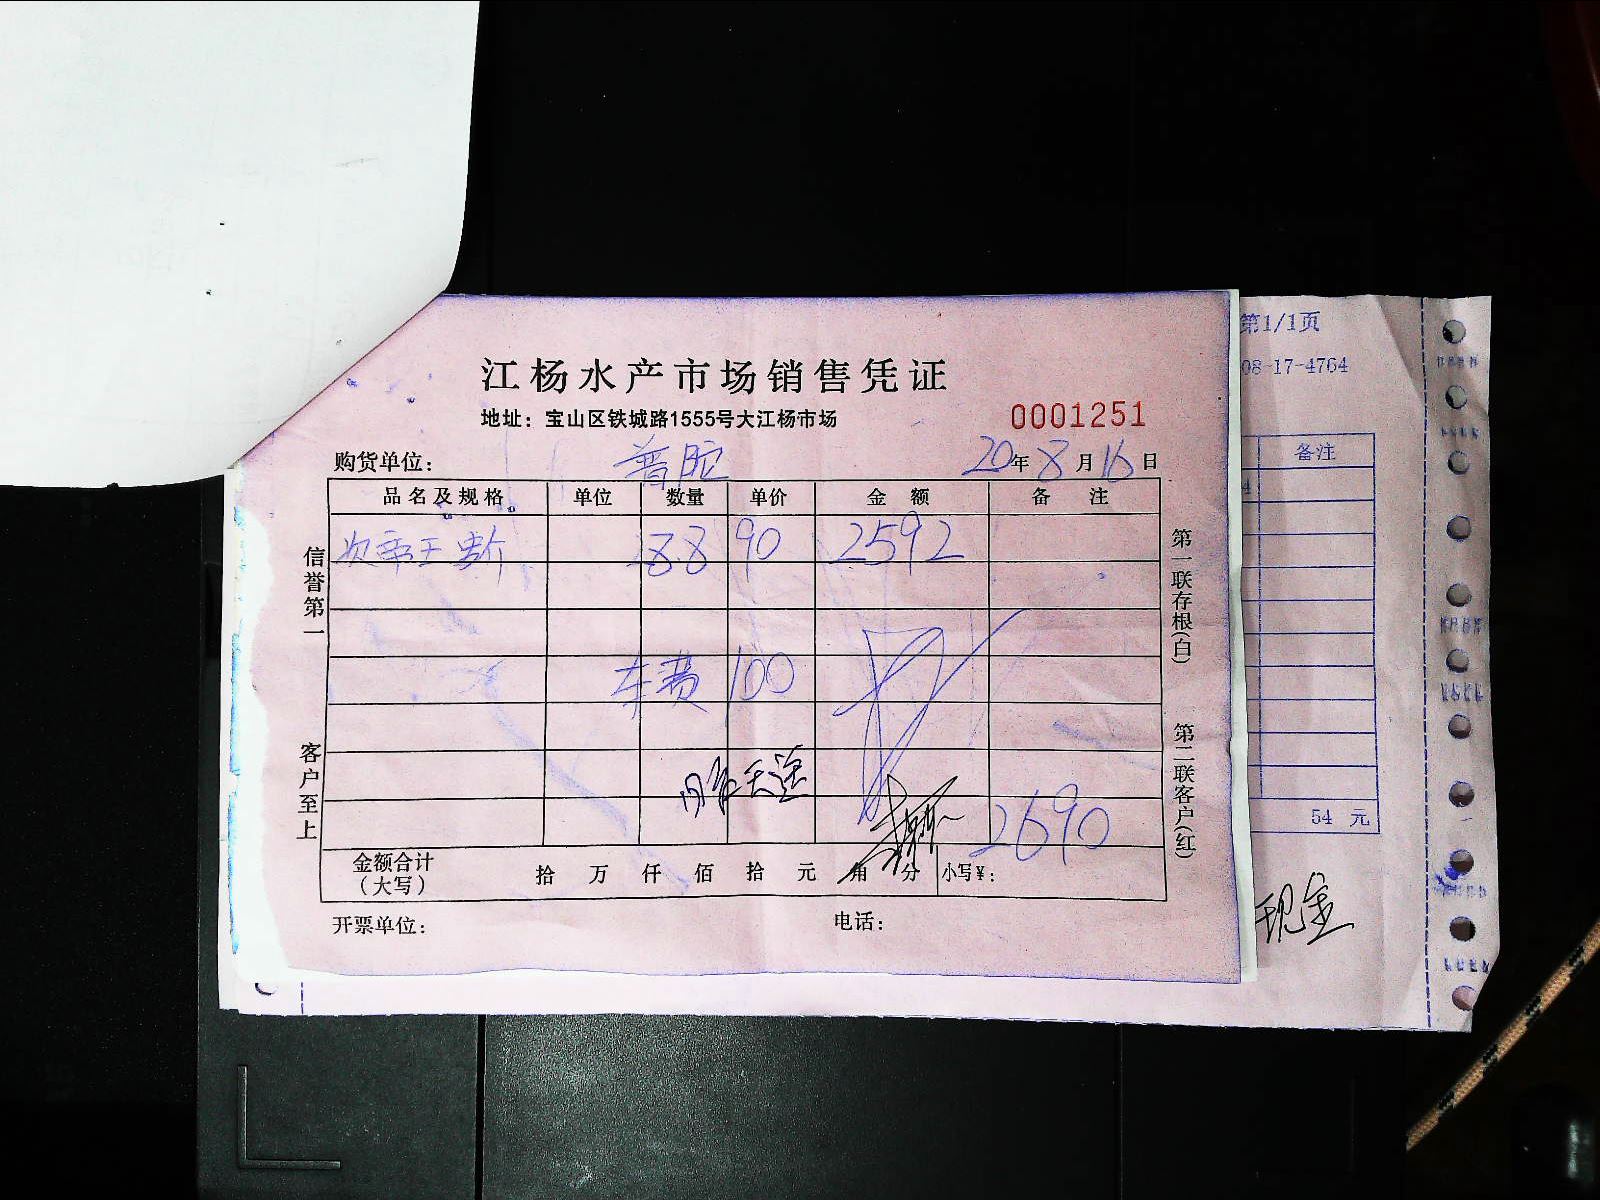 江杨水产市场销售凭证
地址：宝山区铁城路1555号大江杨市场
0001251
购货单位：普陀
20年8月16日
品名及规格 单位 数量 单价 金额 备注
次帝王 90 2592
车费 100
2690
金额合计（大写） 拾 万 仟 佰 拾 元 角 分 小写¥：
开票单位： 电话：
信誉第一
客户至上
第一联存根（白）
第二联客户（红）
第1/1页
08-17-4764
备注
54 元
现金